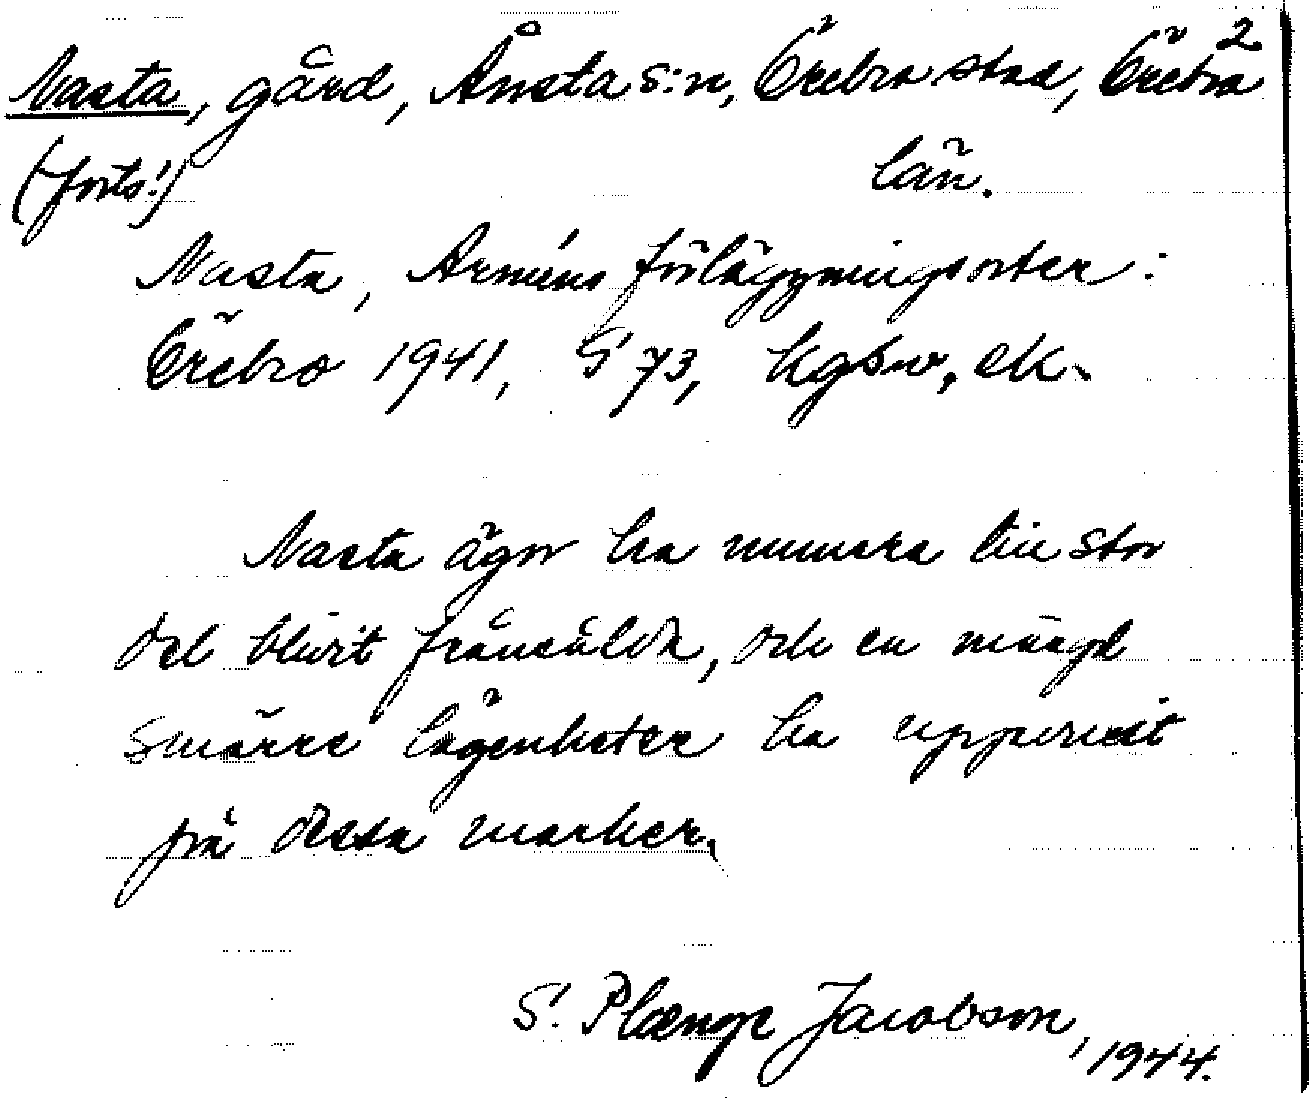 2
Nasta, gård, Ånsta s:n, Örebro stad, Örebro
(forts.) län.
Nasta, Arméns förläggningsorter:
Örebro 1941, S 73, kgsv, ek.
Nasta ägor ha numera till stor
del blivit frånsålda, och en mängd
smärre lägenheter ha uppvuxit
på dessa marker.
S. Plænge Jacobson,
1944.